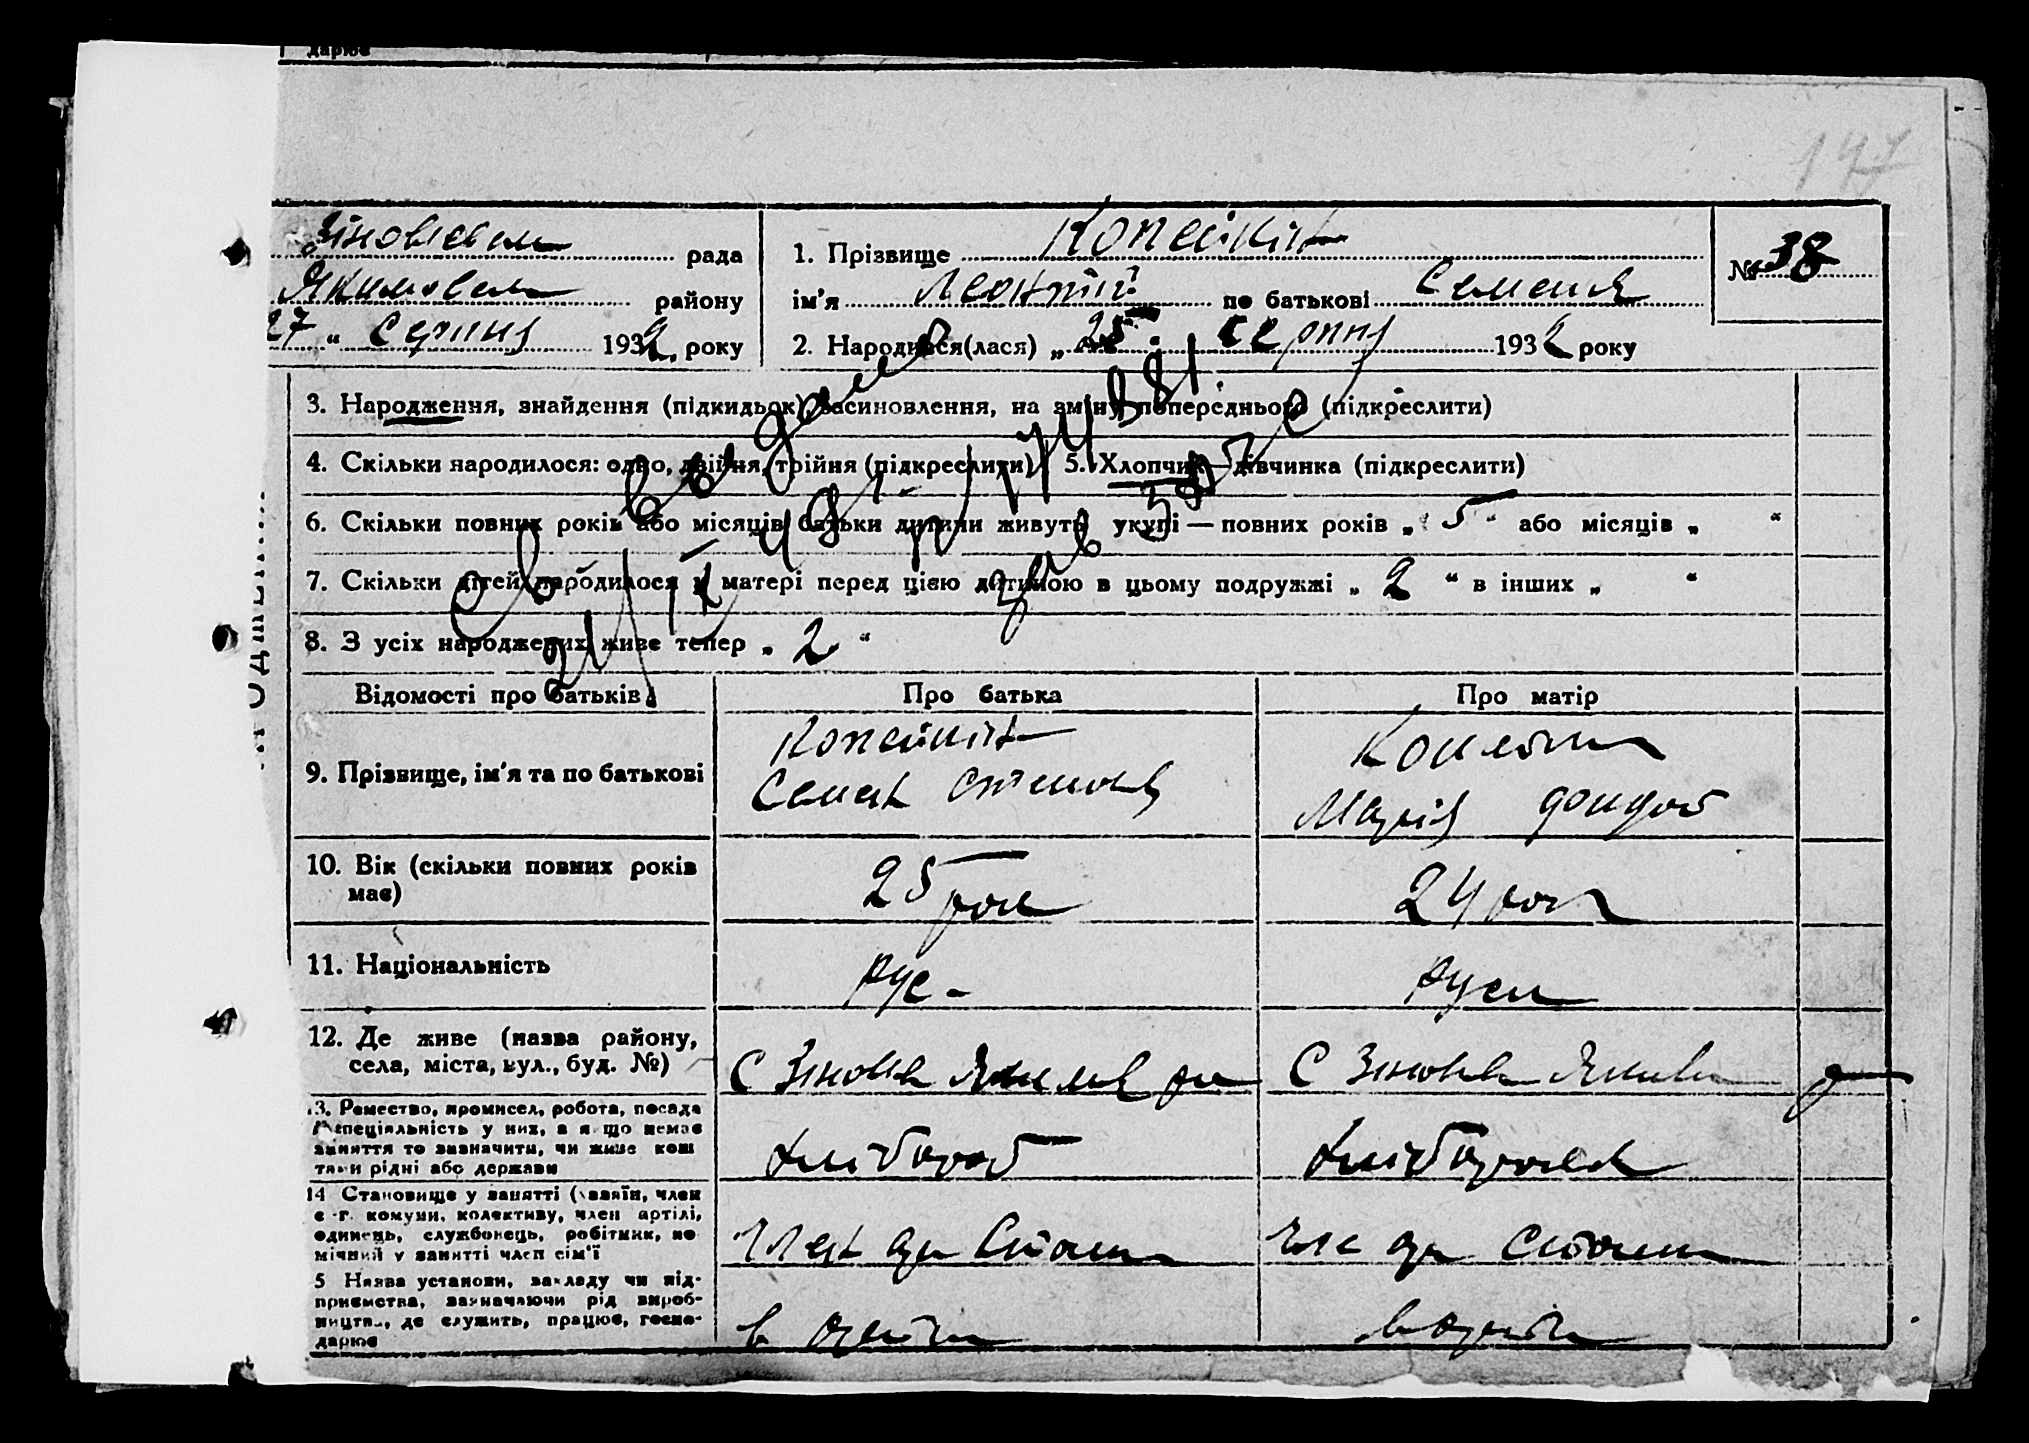 дарює
147
Зіновієвськ рада
Якимовськ району
27 " серпня 1932 року
1. Прізвище Копейкін
ім'я Леонтій по батькові Семенів
2. Народився(лася) „ 25 " серпня 1932 року
№ 38
3. Народження, знайдення (підкидьок), засиновлення, на зміну попереднього (підкреслити)
4. Скільки народилося: одно, двійня, трійня (підкреслити) 5. Хлопчик — дівчинка (підкреслити)
6. Скільки повних років або місяців батьки дитини живуть укупі — повних років „ 5 " або місяців „ "
7. Скільки дітей народилося у матері перед цією дитиною в цьому подружжі „ 2 " в інших „ "
8. З усіх народжених живе тепер „ 2 "
Відомості про батьків Про батька Про матір
9. Прізвище, ім'я та по батькові
Копейкін
Семен
Марія
10. Вік (скільки повних років має)
25 рок
24 рок
11. Національність
рус-
руск
12. Де живе (назва району, села, міста, вул., буд. №)
С Зіновк Якимов рн
С Зіновк Якимов
13. Ремество, промисел, робота, посада
спеціяльність у них, а якщо немає
заняття то визначити, чи живе кош
тами рідні або держави
хлібороб
хліборобка
14 Становище у занятті (хазяїн, член
с.-г. комуни, колективу, член артілі,
одинець, службовець, робітник, по
мічний у занятті член сім'ї
Член арт Сталін
член арт Сталін
5 Назва установи, закладу чи під-
приємства, зазначаючи рід вироб-
ництва, де служить, працює, госпо-
дарює
в артілі
в артілі